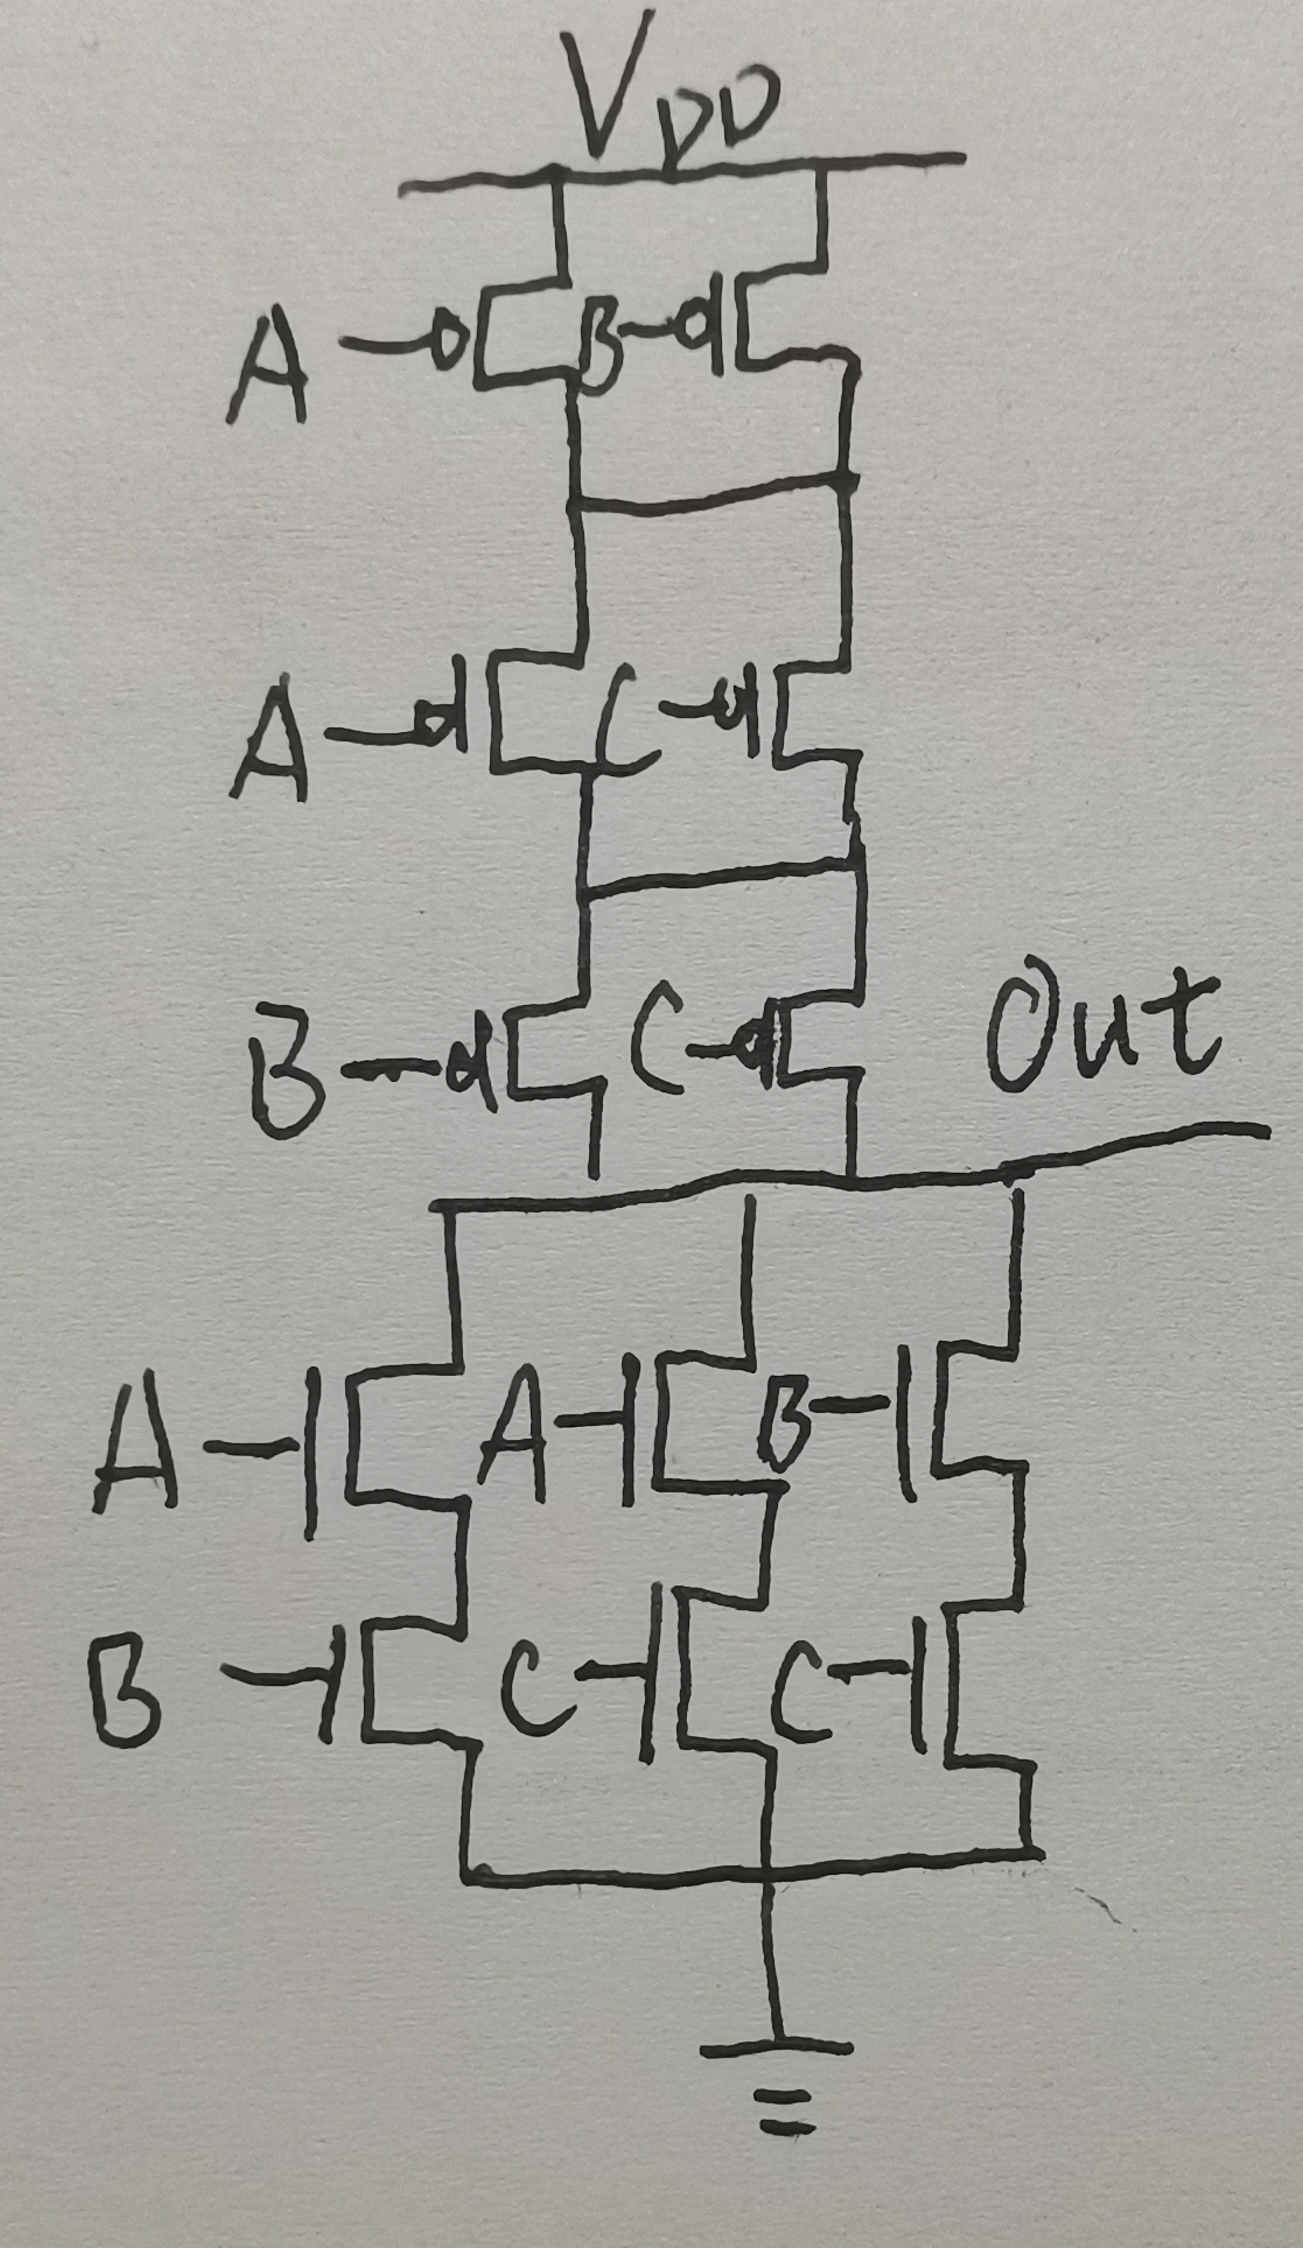 VDD
A B
A C
B C Out
A A B
B C C